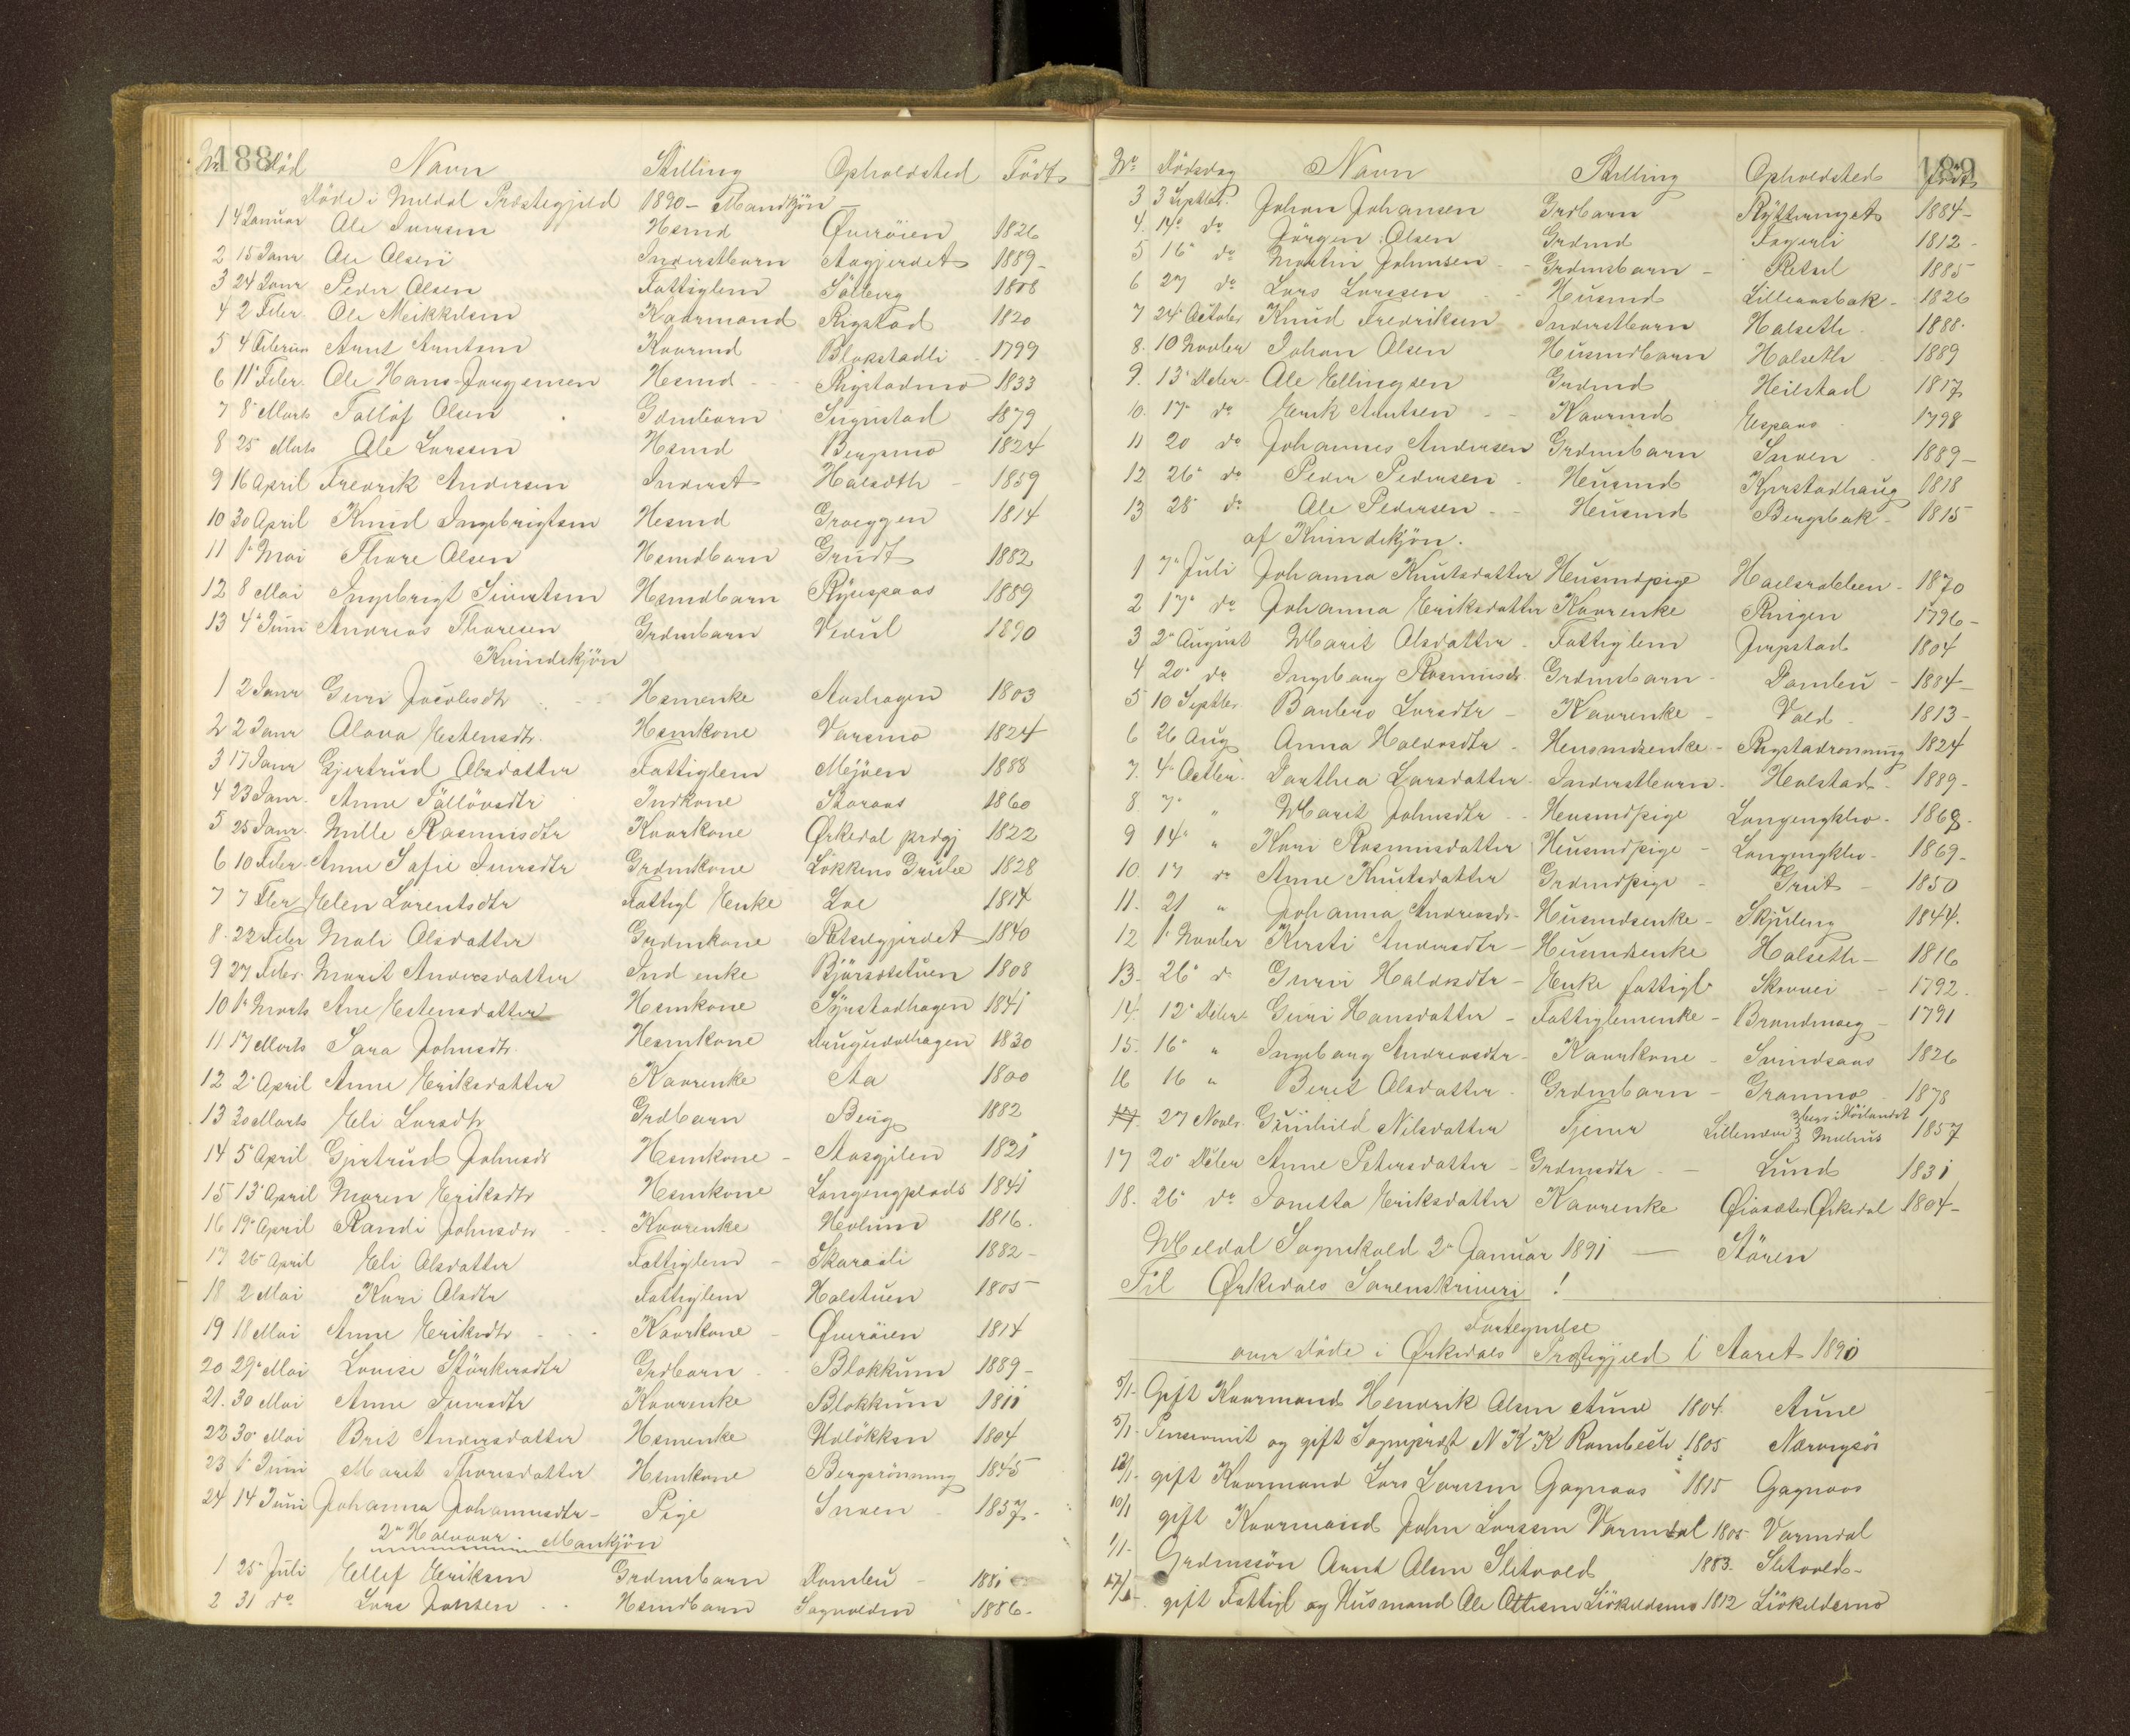 188
No Död Navn Stilling Opholdsted Födt
Döde i Meldal Præstegjeld 1890 – Mandkjön
1 4 Januar Ole Iversen Hsmd Överøien 1826
2 15 Janr Ole Olsen Inderstbarn Aagjerdet 1889 –
3 24 Janr Peder Olsen Fattiglem Sölberg 1808
4 2 Febr. Ole Meikkelsen Kaarmand Rigstad 1820
5 4 Februar Arnt Arntsen Kaarmd Blokstadli 1799
6 11' Febr. Ole Hans Jørgensen Hsmd Rigstadmo 1833
7 8' Marts Tollöf Olsen Gdmbarn Sugustad 1879
8 25 Marts Ole Larssen Hsmd Bergsmo 1824
9 16 April Fredrik Andersen Inderst Halseth – 1859
10 30 April Knud Ingebrigtsen Hesmd Groeggen 1814
11 1' Mai Thore Olsen Hsmdbarn Grudt 1882
12 8 Mai Ingebrigt Sivertsen Hsmdbarn Ryeespaas 1889
13 4' Juni Andreas Thoresen Grdmbarn Vedul 1890
Kvindekjön
1 2 Janr Guri Jacobsdtr Hsmenke Aashagen 1803
2 2 Janr Olava Estensdtr. Hsmkone Varsmo 1824
3 17 Janr Gjertrud Olsdatter Fattiglem Mejöen 1888
4 23 Janr. Anne Tollövsdtr Indkone Storaas 1860
5 25 Janr. Mille Rasmusdtr Kaarkone Ørkedal prdgj 1822
6 10 Febr. Anne Safie Iversdtr Grdmkone Løkkens Grube 1828
7 7 Fbr Helen Lorentsdtr Fattigl Enke Loe 1814
8. 22 Febr Mali Olsdatter Grdmkone Retselgjerdet 1840
9 27 Febr. Marit Andersdatter Ind enke Bjørsetstuen 1808
10 1' Marts Ane Estensdatter Hsmkone Syrstadhagen 1841
11 17 Marts Sara Johnsdtr Hesmkone Drugudalhagen 1830
12 2' April Anne Eriksdatter Kaarenke Aa 1800
13 30 Marts Eli Larsdtr Grdbarn Berg 1882
14 5' April Gjertrud Johnsdr Hsmkone – Aasgjelen 1821
15 13' April Maren Eriksdtr Hsmkone Langengplads 1841
16 19' April Randi Johnsdtr – Kaarenke Hevlum 1816.
17 26 April Eli Olsdatter Fattiglem – Skarasli 1882 –
18 2 Mai Kari Olsdtr Fattiglem Halstuen 1805
19 18 Mai Anne Eriksdtr – Kaarkone – Øverøien 1814
20 29' Mai Louise Størkersdtr Grdbarn Blokkum 1889 –
21. 30 Mai Anne Iversdtr Kaarenke Blokkum 1811
22 30' Mai Brit Andersdatter Hsmenke Udløkken 1804
23 1' Juni Marit Thoresdatter Hsmkone Bergsrönning 1845
24 14 Juni Johanna Johannesdtr – Pige Snoen 1857.
2' Halvaar. Mankjön
1 25' Juli Ellef Eriksen Grdmsbarn Dombu – 1881
2 31 do Lars Jonsen Hsmdbarn Sognolden 1886.
189
No Dödsdag Navn Stilling Opholdsted Födt
3 3 Septbr. Johan Johansen Grdbarn Rytternget 1884 –
4. 14' do Jörgen Olsen Grdmd Fagerli 1812 –
5 16' do Martin Johnsen – Grdmsbarn – Retsel 1885
6 27 do Lars Larssen – Husmd Lilleaasbak – 1826
7 24' October Knud Fredriksen Inderstbarn Halseth 1888
8. 10 Novber Johan Olsen Husmdbarn Halseth 1889
9. 13' Deber Ole Ellingsen Grdmd Heilstad 1817
10. 17' do Erik Arntsen – Kaarmd Espaas 1798
11 20 do Johannes Andersen Grdmsbarn Snoen 1889 –
12 26' do Peder Pedersen – Husmd Kjerstadhaug 1818
13 28' do Ole Pedersen – Husmd Bergsbak – 1815
af Kvindekjön.
1 7' Juli Johanna Knutsdatter Husmdpige – 1870
2 17' do Johanna Eriksdatter Kaarenke Ringen 1796 –
3 2' August Marit Olsdatter – Fattiglem Jerpstad 1804
4 20' do Ingeborg Rasmusdr. Grdmsbarn – Dombu – 1884 –
5 10 Septbr Barbro Larsdtr – Kaarenke – Vold 1813 –
6 26 Aug Anna Haldosdtr – Husmdsenke – Rigstadrønning 1824
7. 4' Octbr. Dorthea Larsdatter. Inderstbarn. Halstad 1889 –
8 7' " Marit Johnsdtr – Husmdpige Langengklev – 1868.
9 14' " Kari Rasmusdatter Husmdpige – Langengklev – 1869 –
10. 17 do Anne Knutsdatter Grdmdpige – Grut – 1850
11. 21 " Johanna Andreasdr – Husmdsenke – Skjuleng 1844.
12 1' Novber Kirsti Andersdtr – Husmdsenke Halseth – 1816
13 – 26' do Guru Haldosdtr – Enke fattigl. Skovvei – 1792.
14. 12' Deber Guri Hansdatter – Fattiglemenke – Brandmoeg – 1791
15. 16' " Ingeborg Andreasdtr – Kaarkone – Svindsaas 1826
16 16 " Berit Olsdatter – Grdmbarn – Granmo 1878
27 Novbr. Gunhild Nilsdatter Tjener 1857
17 20' Deber Anne Petersdatter – Grdmsdtr – Lund 1831
18. 26' do Jonetta Eriksdatter Kaarenke Øiasæter Ørkedal 1804 –
Meldal Sognekald 2' Januar 1891 — Stören
Til Ørkedals Sorenskriveri !
Fortegnelse
over döde i Ørkedals Præstegjeld i Aaret 1890
5/1 – Gift Kaarmand Hendrik Olsen Aune 1804. Aune
5/1 – Pensionist og gift Sognepræst N K K Rambech 1805 Nærvigsøi
12/1 – gift Kaarmand Lars Larsen Gagnaas 1815 Gagnaas
10/1 gift Kaarmand John Larssen Vormdal 1805 Vormdal
1/1 – Grdmssön Arnt Olsen Slitvold 1883. Slitvold –
17/1 – gift Fattigl og Husmand Ole Ottesen Liökeldsmo 1812 Liökeldsmo